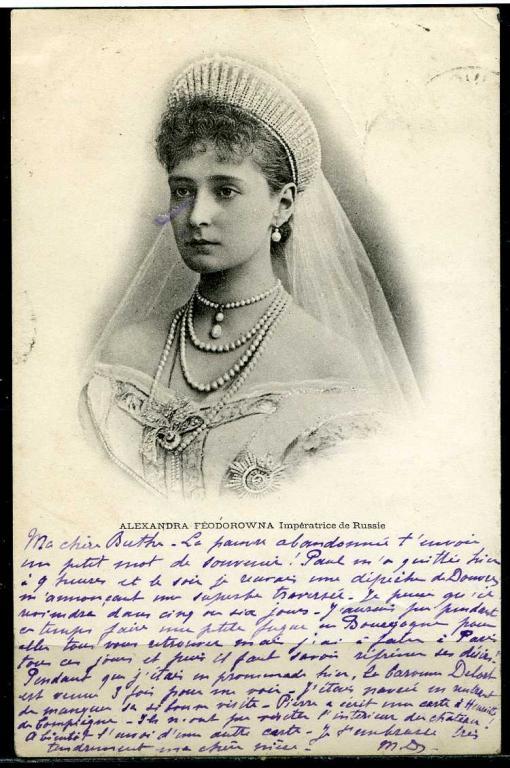 ALEXANDRA FÉODOROWNA Impératrice de Russie
Ma chère Berthe - La pauvre abandonnée t'envoie
un petit mot de souvenir! Paul m'a quittée hier
à 9 heures et le soir je recevais une dépêche de Douvres
m'annonçant une superbe traversée. Je pense qu'il
reviendra dans cinq ou six jours - J'aurais pu pendant
ce temps faire une petite fugue en Bourgogne pour
aller tous vous retrouver mais j'ai à faire à Paris
tous ces jours et puis il faut savoir réprimer ses désirs!
Pendant que j'étais en promenade hier, la baronne
est venue 3 fois pour me voir - j'étais navrée en rentrant
de manquer sa si bonne visite - Pierre a écrit une carte à
de Compiègne - Ils n'ont pu visiter l'intérieur du château!
A bientôt l'envoi d'une autre carte - Je t'embrasse très
tendrement ma chère - M. D.